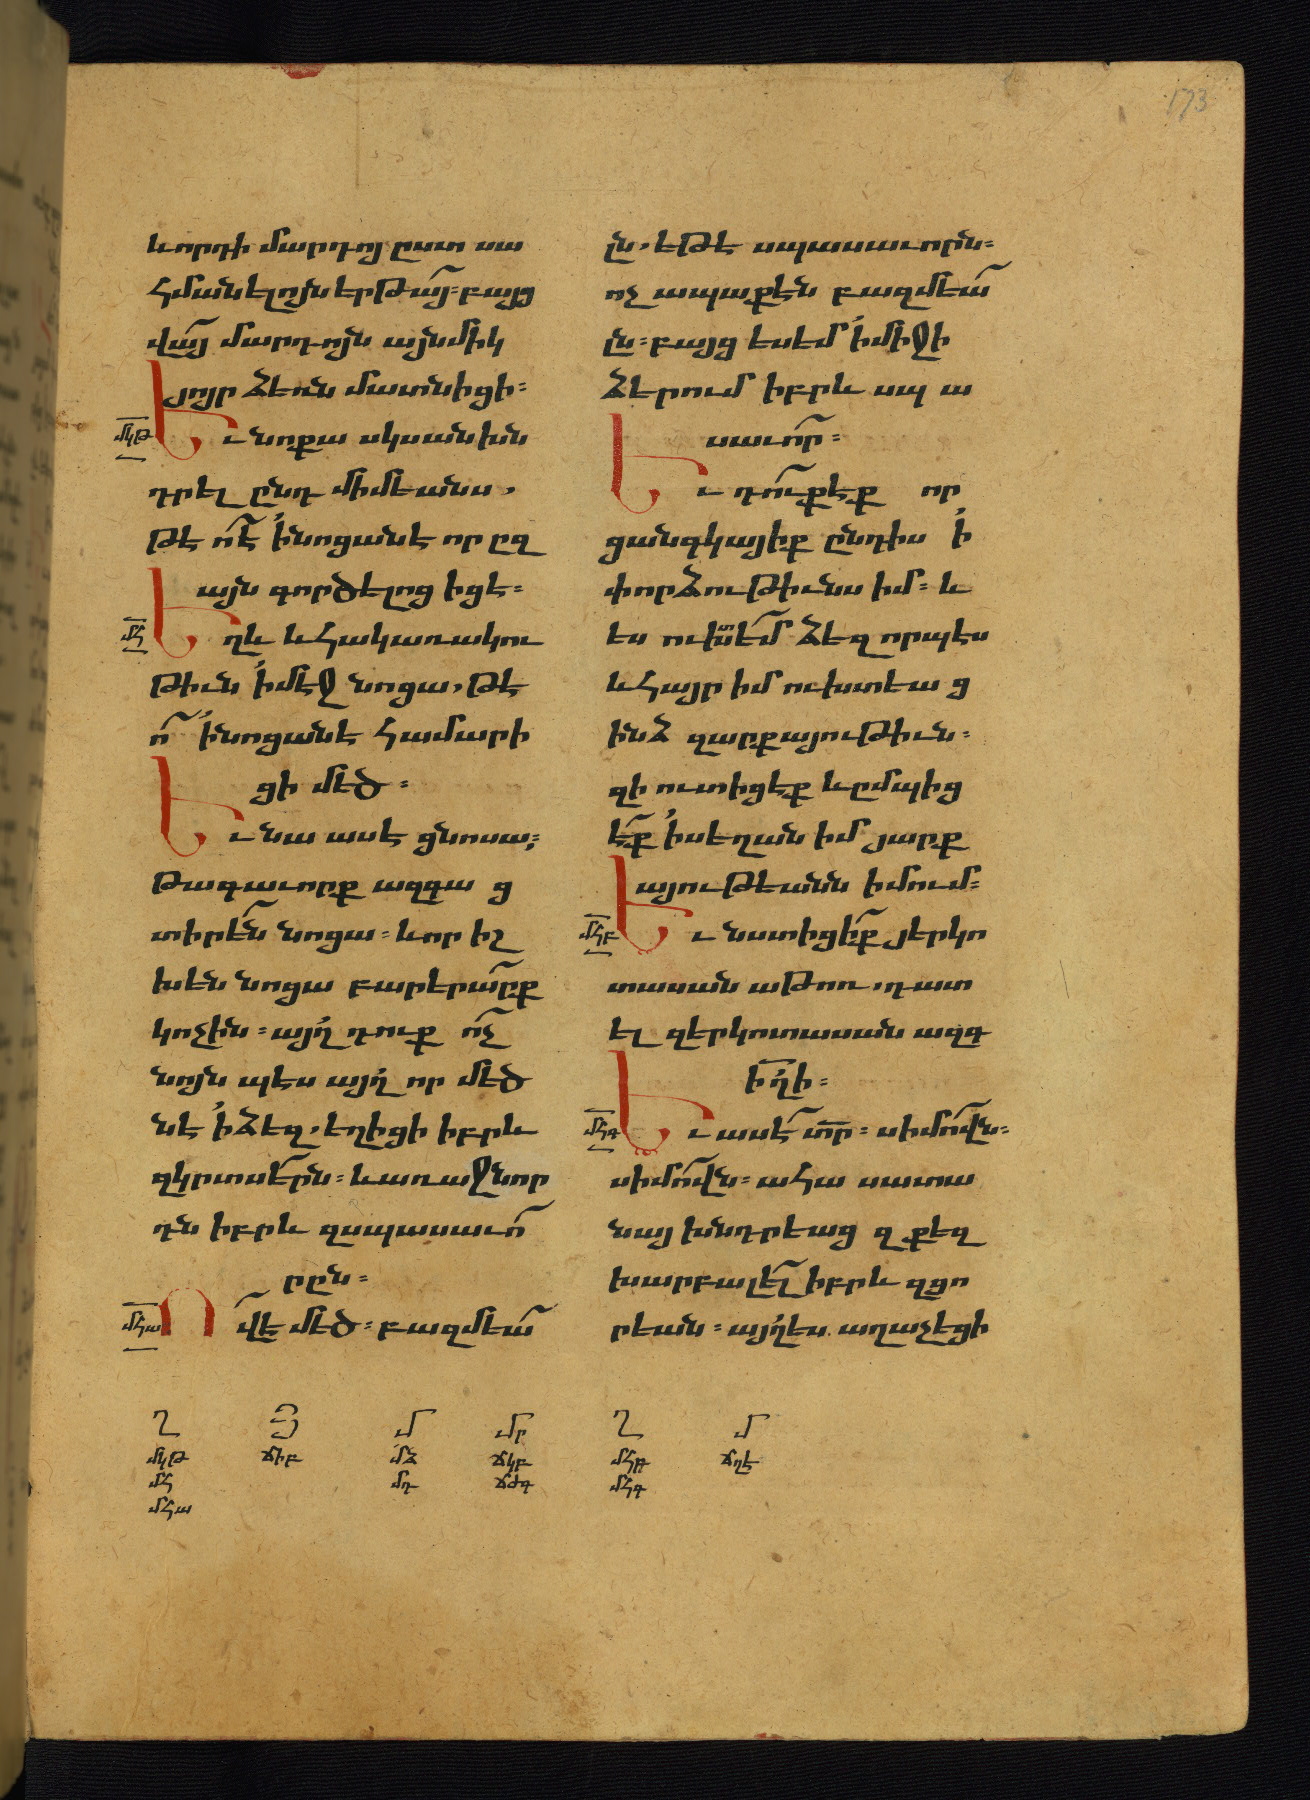 և որդի մարդոյ ըստ սա
հմանելոյն երթա՜յ։ բայց
վա՜յ մարդոյն այնմիկ
յոյր ձեռն մատնիցի։
մկթ
Եւ նոքա սկսան խն
դրել ընդ միմեանս,
թէ ո՞վ է ի նոցանէ որ ըզ
այն գործելոց իցէ։
մհ
Եղև և հակառակու
թիւն ի մէջ նոցա, թէ
ո՞ ի նոցանէ համարի
ցի մեծ։
Եւ նա ասէ ցնոսա։
Թագաւորք ազգա ց
տիրե՜ն նոցա։ և որ իշ
խեն նոցա բարերա՜րք
կոչին։ այղ դուք ո՜չ
նոյն պէս այղ որ մեծ
նէ ի ձէզ, եղիցի իբրև
զկրտսե՜րն։ և առաջնոր
դն իբրև զսպասաւո՜
րըն։
մհա
Ո՜վ է մեծ։ բազմեա՜
ըն, եթէ սպասաւորն։
ոչ ապաքէն բազմեա՜
ըն։ բայց ես եմ ի միջի
ձերում իբրև սպ ա
սաւո՜ր։
Եւ դո՜ւք էք որ
ցանգ կայիք ընդիս ի
փորձութիւնս իմ։ և
ես ուխտե՜մ ձեզ որպէս
և հայր իմ ուխտեա ց
ինձ զարքայութիւն։
զի ուտիցէք և ըմպից
է՜ք ի սեղան իմ յարք
այութեանն իմում։
մհբ
Եւ նստիցի՜ք յերկո
տասան աթոռ, դատ
ել զերկոտասան ազգ
ի՜ղի։
մհգ
Եւ ասէ՜ տ՜ր։ սիմո՜վն։
սիմո՜վն։ ահա սատա
նայ խնդրեաց զ քեզ
խարբալե՜լ իբրև զցո
րեան։ այղ ես աղաչեցի
մկթ
մհ
մհա
ճիբ
մձ
մդ
ճկբ
ճժգ
մհբ
մհգ
ճղէ
173